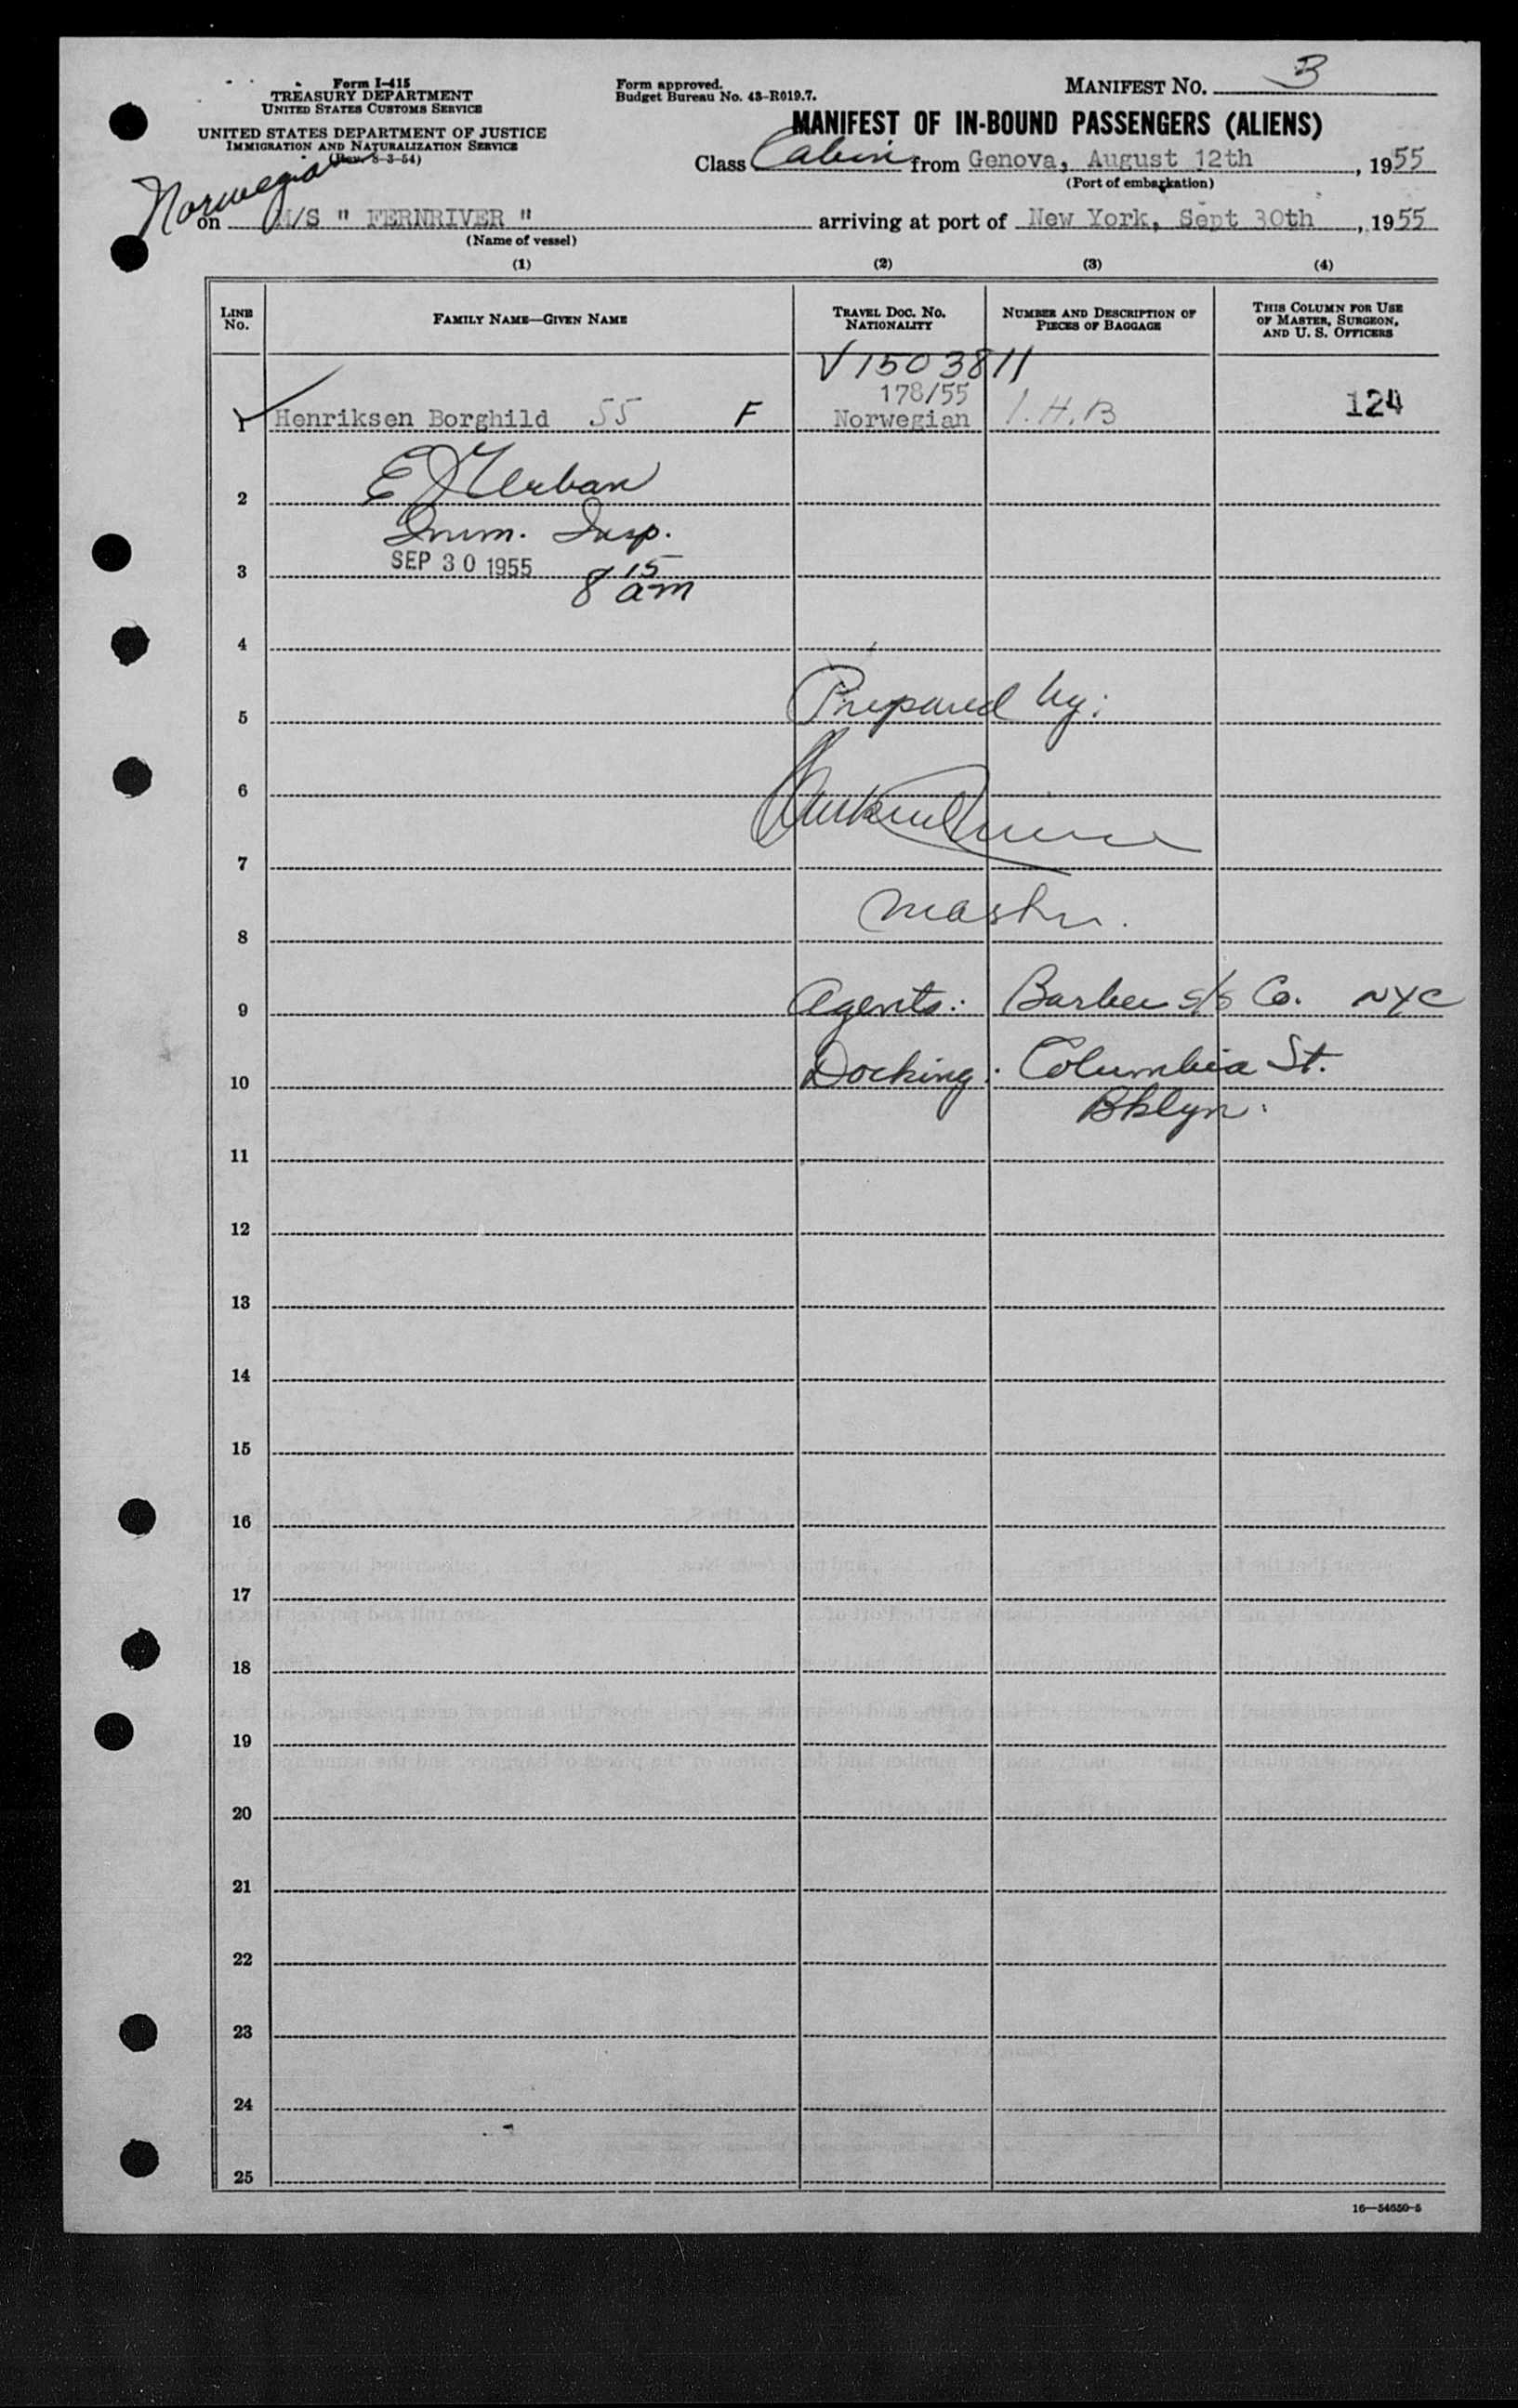 Form I-415
TREASURY DEPARTMENT
UNITED STATES CUSTOMS SERVICE
UNITED STATES DEPARTMENT OF JUSTICE
IMMIGRATION AND NATURALIZATION SERVICE
(Rev. 8-3-54)
Form approved.
Budget Bureau No. 43-R019.7.
MANIFEST NO. 3
MANIFEST OF IN-BOUND PASSENGERS (ALIENS)
Class Cabin from Genova, August 12th, 1955
(Port of embarkation)
Norwegian
on M/S " FERNRIVER " arriving at port of New York, Sept 30th, 1955
(Name of vessel)
(1) (2) (3) (4)
LINE No. FAMILY NAME—GIVEN NAME TRAVEL DOC. NO. NATIONALITY NUMBER AND DESCRIPTION OF PIECES OF BAGGAGE THIS COLUMN FOR USE OF MASTER, SURGEON, AND U. S. OFFICERS
V1503811
178/55
1 Henriksen Borghild 55 F Norwegian 1.H.B 124
2 E Urban
Imm. Insp.
3 SEP 30 1955 8 15 am
4
5 Prepared by:
6
7
8 Master.
9 Agents: Barber S/S Co. NYC
10 Docking: Columbia St.
Bklyn.
11
12
13
14
15
16
17
18
19
20
21
22
23
24
25
16—54650-5